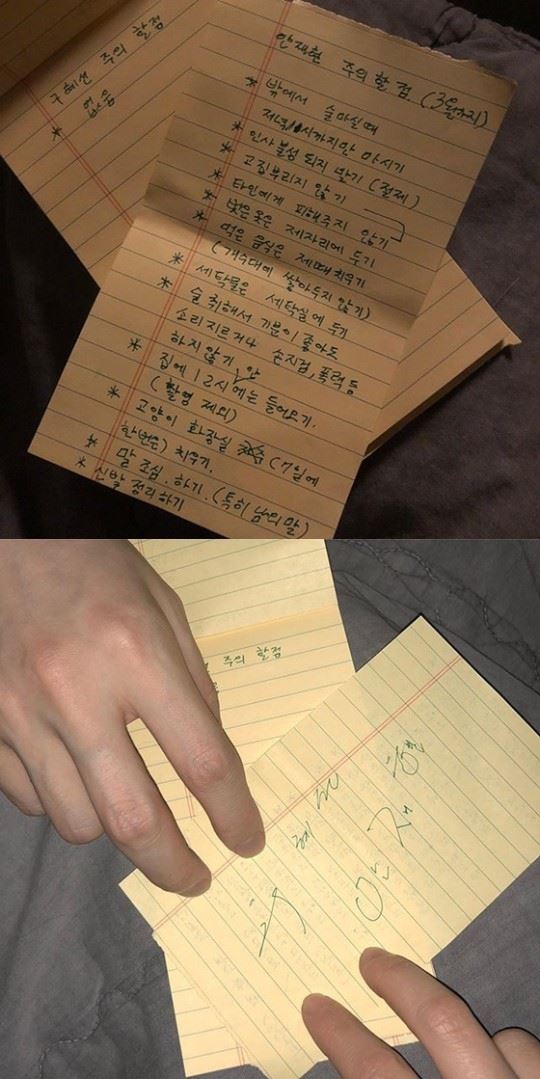 구혜선 주의 할점
* 없음
안재현 주의할 점. (3월까지)
* 밖에서 술마실때
저녁 11시까지만 마시기
* 인사불성 되지 말기 (절제)
* 고집부리지 않기
* 타인에게 피해주지 않기
* 벗은옷은 제자리에 두기
* 먹은 음식은 제때 치우기
(개수대에 쌓아두지 않기)
* 세탁물은 세탁실에 두기
* 술 취해서 기분이 좋아도
소리지르거나 손지검, 폭력 등
하지않기
* 집에 12시 안에는 들어오기.
(촬영 제외)
* 고양이 화장실 (7일에
한번은) 치우기.
* 말 조심. 하기. (특히 남의말)
* 신발 정리하기
주의 할점
구혜선
안재현